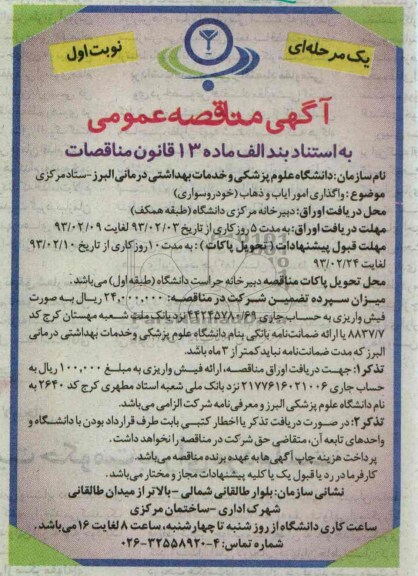 یک مرحله‌ای
نوبت اول
آگهی مناقصه عمومی
به استناد بند الف ماده ۱۳ قانون مناقصات
نام سازمان: دانشگاه علوم پزشکی و خدمات بهداشتی درمانی البرز-ستاد مرکزی
موضوع: واگذاری امور ایاب و ذهاب (خودرو سواری)
محل دریافت اوراق: دبیرخانه مرکزی دانشگاه (طبقه همکف)
مهلت دریافت اوراق: به مدت ۵ روز کاری از تاریخ ۹۳/۰۲/۰۳ لغایت ۹۳/۰۲/۰۹
مهلت قبول پیشنهادات (تحویل پاکات): به مدت ۱۰ روز کاری از تاریخ ۹۳/۰۲/۱۰
لغایت ۹۳/۰۲/۲۴
محل تحویل پاکات مناقصه دبیرخانه حراست دانشگاه (طبقه اول) می‌باشد.
میزان سپرده تضمین شرکت در مناقصه: ۲۴,۰۰۰,۰۰۰ ریال به صورت
فیش واریزی به حساب جاری ۴۴۲۴۵۷۸۰/۶۹ نزد بانک ملت شعبه مهستان کرج کد
۸۸۳۷/۷ یا ارائه ضمانت‌نامه بانکی بنام دانشگاه علوم پزشکی وخدمات بهداشتی درمانی
البرز که مدت ضمانت‌نامه نباید کمتر از ۳ ماه باشد.
تذکر۱: جهت دریافت اوراق مناقصه، ارائه فیش واریزی به مبلغ ۱۰۰,۰۰۰ ریال به
حساب جاری ۲۱۷۷۶۱۶۰۲۱۰۰۶ نزد بانک ملی شعبه استاد مطهری کرج کد ۲۶۴۰ به
نام دانشگاه علوم پزشکی البرز و معرفی‌نامه شرکت الزامی می‌باشد.
تذکر۲: در صورت دریافت تذکر یا اخطار کتبی بابت طرف قرارداد بودن با دانشگاه و
واحدهای تابعه آن، متقاضی حق شرکت در مناقصه را نخواهد داشت.
پرداخت هزینه چاپ آگهی‌ها به عهده برنده مناقصه می‌باشد.
کارفرما در رد یا قبول یک یا کلیه پیشنهادات مجاز و مختار می‌باشد.
نشانی سازمان: بلوار طالقانی شمالی - بالاتر از میدان طالقانی
شهرک اداری - ساختمان مرکزی
ساعت کاری دانشگاه از روز شنبه تا چهارشنبه، ساعت ۸ لغایت ۱۶ می‌باشد.
شماره تماس: ۴-۳۲۵۵۸۹۲۰-۰۲۶